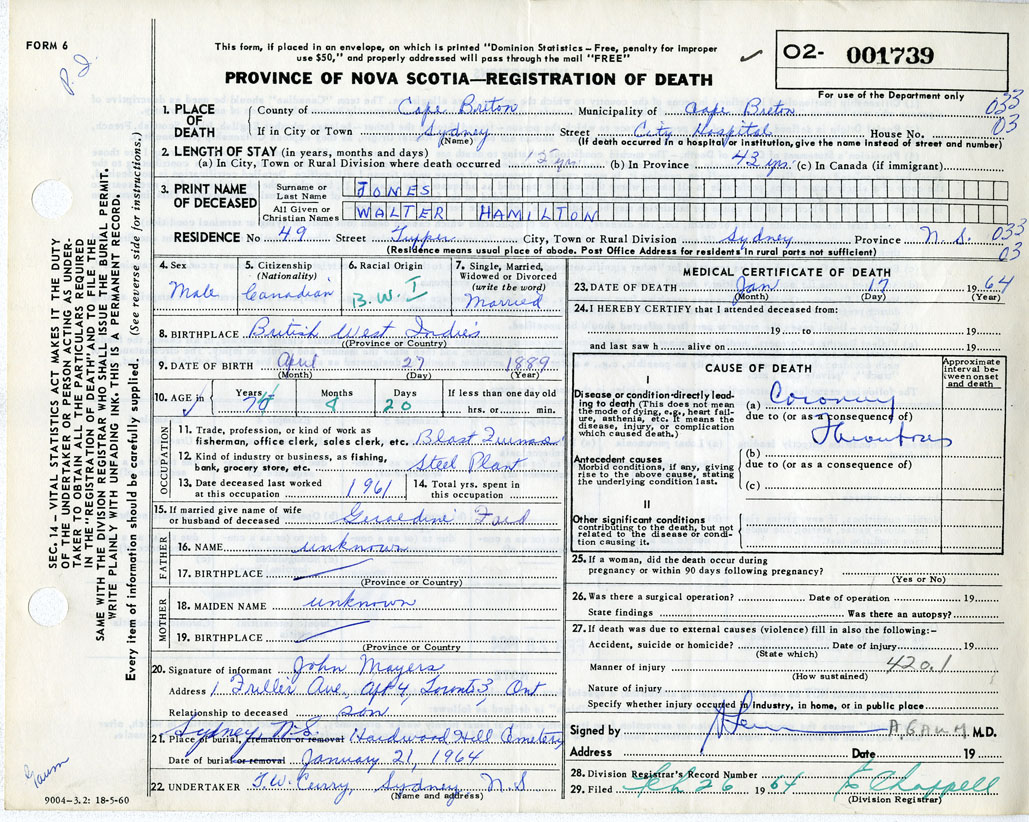 FORM 6
P.I.
This form, if placed in an envelope, on which is printed "Dominion Statistics – Free, penalty for improper
use $50," and properly addressed will pass through the mail "FREE"
PROVINCE OF NOVA SCOTIA—REGISTRATION OF DEATH
O2- 001739
For use of the Department only
1. PLACE OF DEATH County of Cape Breton Municipality of Cape Breton 033
If in City or Town Sydney Street City Hospital House No. 03
(Name) (If death occurred in a hospital or institution, give the name instead of street and number)
2. LENGTH OF STAY (in years, months and days)
(a) In City, Town or Rural Division where death occurred 15 yrs (b) In Province 43 yrs (c) In Canada (if immigrant)
3. PRINT NAME OF DECEASED
Surname or Last Name JONES
All Given or Christian Names WALTER HAMILTON
RESIDENCE No 49 Street Tupper City, Town or Rural Division Sydney Province N.S. 033
(Residence means usual place of abode. Post Office Address for residents in rural parts not sufficient) 03
4. Sex Male
5. Citizenship (Nationality) Canadian
6. Racial Origin B.W.I
7. Single, Married, Widowed or Divorced (write the word) Married
8. BIRTHPLACE British West Indies
(Province or Country)
9. DATE OF BIRTH April 27 1889
(Month) (Day) (Year)
10. AGE in Years 74 Months 8 Days 20 If less than one day old hrs. or min.
OCCUPATION
11. Trade, profession, or kind of work as fisherman, office clerk, sales clerk, etc. Blast Furnas
12. Kind of industry or business, as fishing, bank, grocery store, etc. Steel Plant
13. Date deceased last worked at this occupation 1961
14. Total yrs. spent in this occupation
15. If married give name of wife or husband of deceased Geraldine Ford
FATHER
16. NAME unknown
17. BIRTHPLACE
(Province or Country)
MOTHER
18. MAIDEN NAME unknown
19. BIRTHPLACE
(Province or Country)
20. Signature of informant John Mayers
Address 1 Fuller Ave, Apt 4, Toronto 3, Ont
Relationship to deceased son
Sydney, N.S.
21. Place of burial, cremation or removal Hardwood Hill Cemetery
Date of burial or removal January 21, 1964
22. UNDERTAKER T.W. Curry, Sydney N.S
(Name and address)
MEDICAL CERTIFICATE OF DEATH
23. DATE OF DEATH Jan 17 1964
(Month) (Day) (Year)
24. I HEREBY CERTIFY that I attended deceased from:
19 to 19
and last saw h alive on 19
CAUSE OF DEATH
Approximate interval between onset and death
I
Disease or condition directly leading to death (This does not mean the mode of dying, e.g., heart failure, asthenia, etc. It means the disease, injury, or complication which caused death.)
(a) Coronary
due to (or as a consequence of)
Thrombosis
Antecedent causes
Morbid conditions, if any, giving rise to the above cause, stating the underlying condition last.
(b)
due to (or as a consequence of)
(c)
II
Other significant conditions contributing to the death, but not related to the disease or condition causing it.
25. If a woman, did the death occur during pregnancy or within 90 days following pregnancy?
(Yes or No)
26. Was there a surgical operation? Date of operation 19
State findings Was there an autopsy?
27. If death was due to external causes (violence) fill in also the following:–
Accident, suicide or homicide? Date of injury 19
(State which)
Manner of injury 420.1
(How sustained)
Nature of injury
Specify whether injury occurred in industry, in home, or in public place
Signed by M.D.
Address Date 19
28. Division Registrar's Record Number
29. Filed Feb 26 1964 E Chappell
(Division Registrar)
SEC. 14 – VITAL STATISTICS ACT MAKES IT THE DUTY
OF THE UNDERTAKER OR PERSON ACTING AS UNDER-
TAKER TO OBTAIN ALL THE PARTICULARS REQUIRED
IN THE "REGISTRATION OF DEATH" AND TO FILE THE
SAME WITH THE DIVISION REGISTRAR WHO SHALL ISSUE THE BURIAL PERMIT.
WRITE PLAINLY WITH UNFADING INK. THIS IS A PERMANENT RECORD.
Every item of information should be carefully supplied. (See reverse side for instructions.)
9004–3.2: 18-5-60